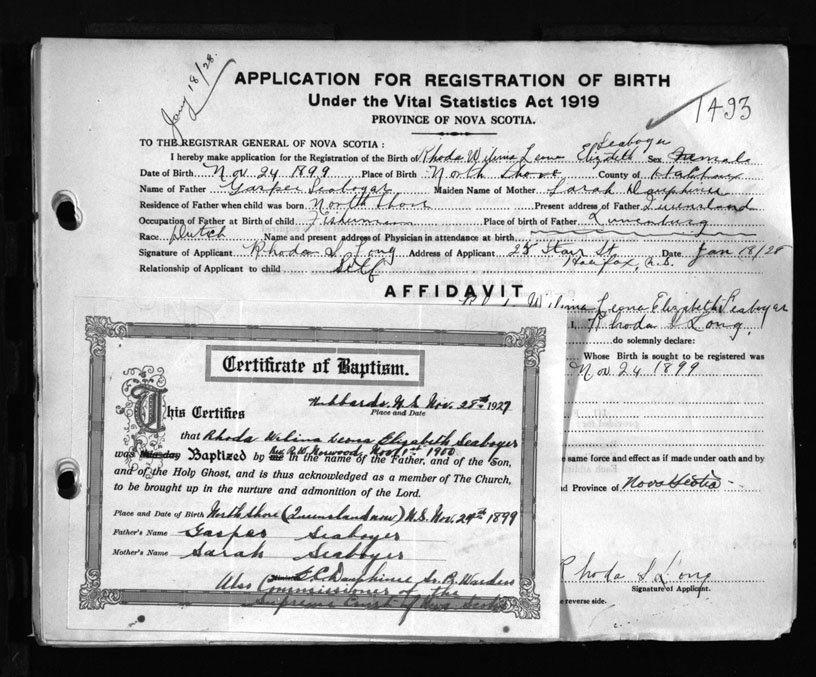 Jany 18/28.
APPLICATION FOR REGISTRATION OF BIRTH
Under the Vital Statistics Act 1919
PROVINCE OF NOVA SCOTIA.
1493
TO THE REGISTRAR GENERAL OF NOVA SCOTIA:
Seaboyer
I hereby make application for the Registration of the Birth of Rhoda Wilima Leona Elizabeth Sex Female
Date of Birth Nov 24 1899 Place of Birth North Shore County of Halifax
Name of Father Gasper Seaboyar Maiden Name of Mother Sarah Dauphinee
Residence of Father when child was born North Shore Present address of Father Queensland
Occupation of Father at Birth of child Fisherman Place of birth of Father Lunenburg
Race Dutch Name and present address of Physician in attendance at birth
Signature of Applicant Rhoda S Long Address of Applicant 28 Starr St Date Jan 18/28
Halifax, N.S.
Relationship of Applicant to child Self
AFFIDAVIT
Wilima Leona Elizabeth Seaboyar
I, Rhoda S Long,
do solemnly declare:
Whose Birth is sought to be registered was
Nov 24 1899
same force and effect as if made under oath and by
d Province of Nova Scotia
Rhoda S Long
Signature of Applicant.
e reverse side.
Certificate of Baptism.
Hubbards. N.S. Nov. 28th 1927
Place and Date
This Certifies
that Rhoda Wilima Leona Elizabeth Seaboyer
was Baptized by Rev. R. W. Norwood, Nov 1st 1900
in the name of the Father, and of the Son,
and of the Holy Ghost, and is thus acknowledged as a member of The Church,
to be brought up in the nurture and admonition of the Lord.
Place and Date of Birth North Shore (Queensland now) N.S. Nov. 24th 1899
Father's Name Gasper Seaboyer
Mother's Name Sarah Seaboyer
G C Dauphinee Sr. R. Warden
Also Commissioner of the
Supreme Court of Nova Scotia